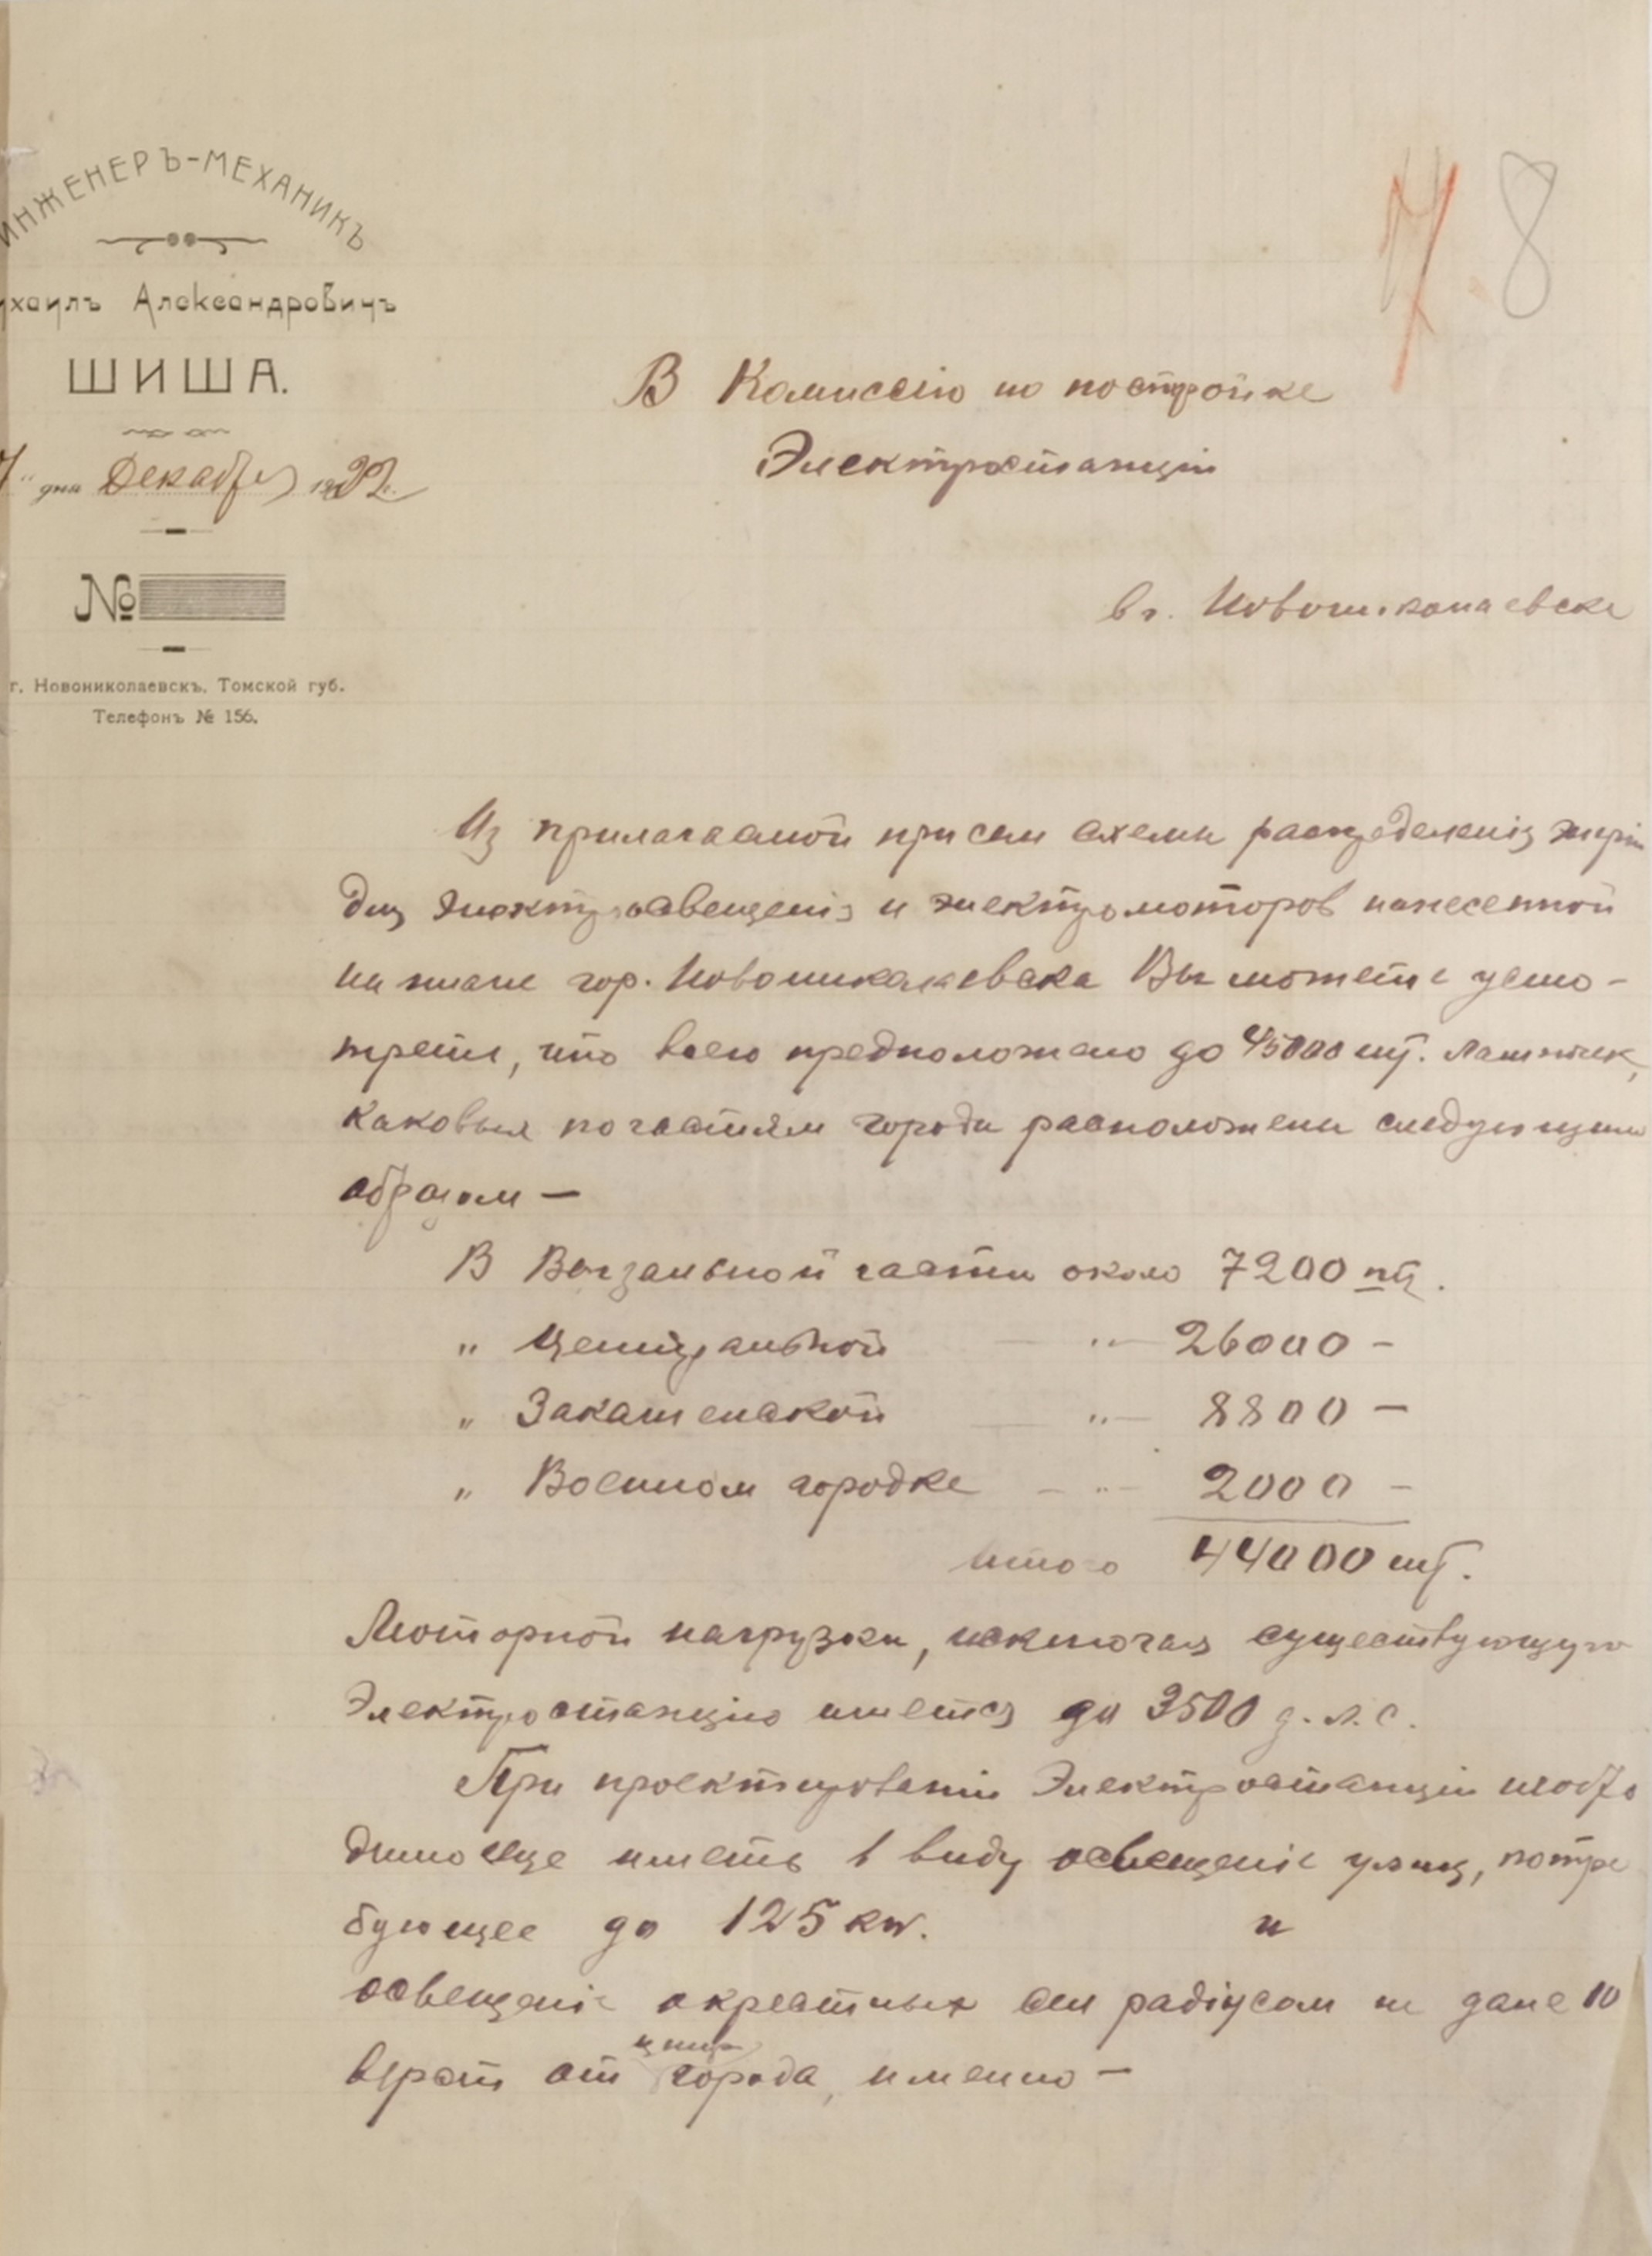 ИНЖЕНЕРЪ-МЕХАНИКЪ
ихаилъ Александровичъ
ШИША.
7 " дня Декабря 1922 г.
№
г. Новониколаевскъ, Томской губ.
Телефонъ № 156.
7. 8
В Комиссію по постройке
Электростанціи
в г. Новониколаевске
Из прилагаемой при сем схемы распределенія энергіи
для электроосвещенія и электромоторов нанесенной
на плане гор. Новониколаевска Вы можете усмо-
треть, что всего предположено до 45000 шт. лампочек,
каковыя по частям города расположены следующим
образом —
В Вокзальной части около 7200 шт.
" Центральной — " — 26000 —
" Закаменской — " — 8800 —
" Военном городке — " — 2000 —
Итого 44000 шт.
Моторной нагрузки, исключая существующую
Электростанцію имется до 3500 д. л. с.
При проектированіи Электростанціи необхо
димо еще иметь в виду освещеніе улиц, потре
бующее до 125 kw. и
освещеніе окрестных сел радіусом не далее 10
верст от центр города, именно —